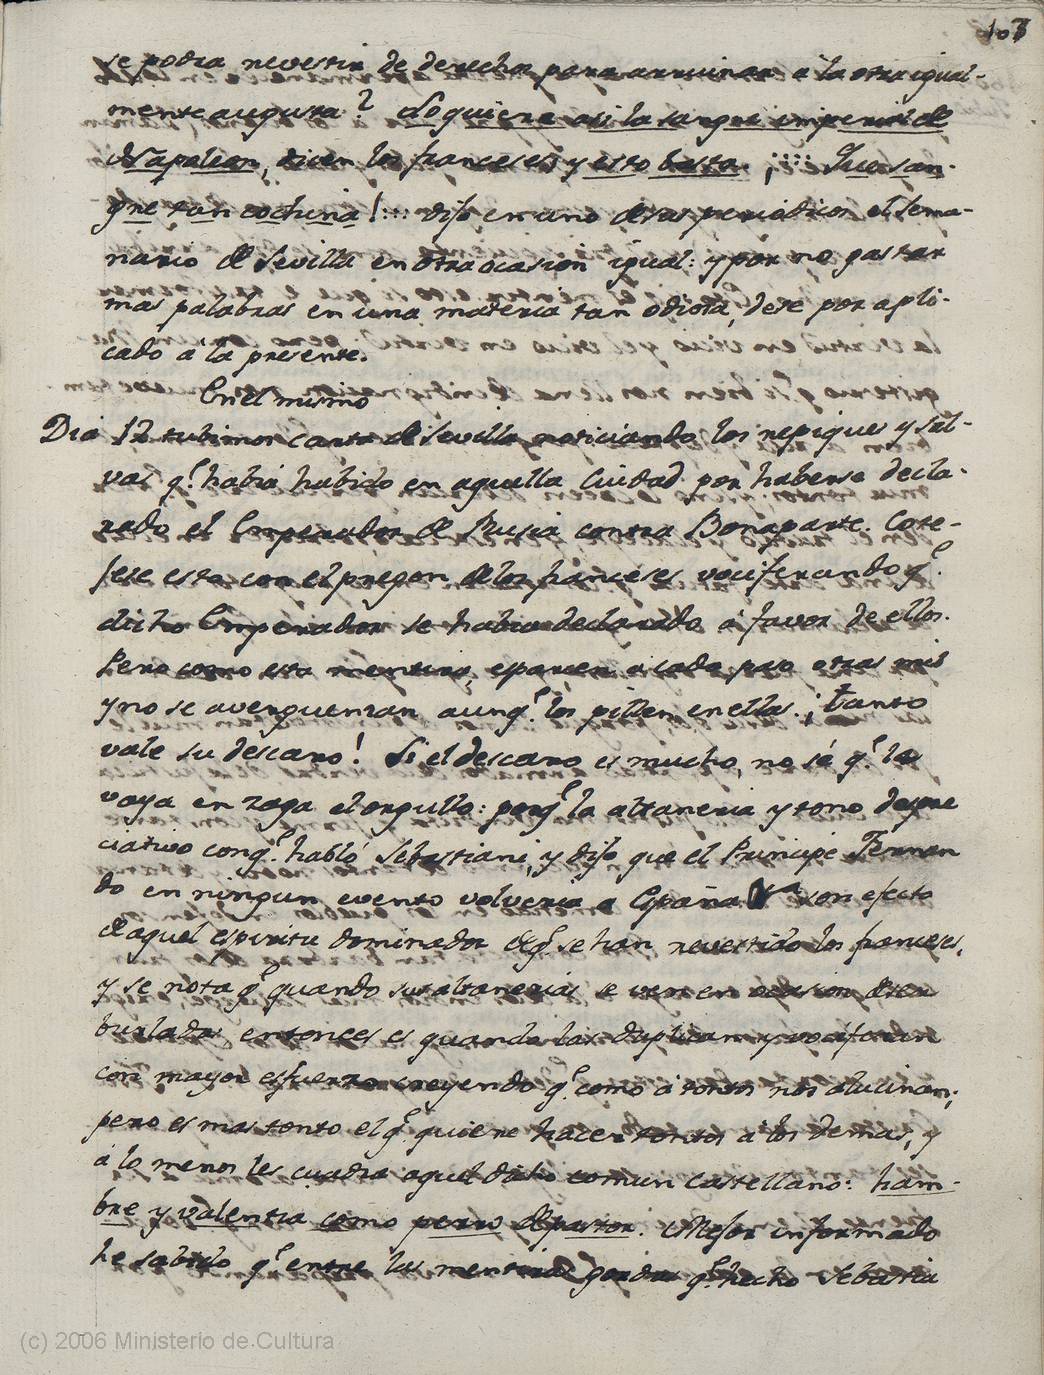 103
se podia revestir de derechos para arruinar a la otra igual-
mente augusta? Lo quiere asi la sangre imperial de
Napoleon, dicen los franceses y esto basta. ¡::: Que san-
gre tan cochina!::: dijo en uno de sus periodicos el sema-
nario de Sevilla en otra ocasion igual: y por no gastar
mas palabras en una materia tan odiosa, dese por apli-
cado á la presente.
En el mismo
Dia 12 tubimos carta de Sevilla noticiando los repiques y sal-
vas q.e habia habido en aquella Ciudad por haberse decla-
rado el Emperador de Rusia contra Bonaparte. Cote-
jese esta con el pregon de los franceses vociferando q.e
dicho Emperador se habia declarado á favor de ellos.
Pero como esta mentira, esparcen a cada paso otras mis
y no se averguenzan aunq.e los pillen en ellas. ¡tanto
vale su descaro! Si el descaro es mucho, no sé q.e la
vaya en zaga el orgullo: porq.e la altaneria y tono depre
ciativo conq.e habló Sebastiani, y dijo que el Principe Fernan
do en ningun evento volveria a España son efecto
de aquel espiritu dominador de q.e se han revestido los franceses,
y se nota q.e quando sus altanerias se ven en ocasion de ser
burladas entonces es quando las duplican y vociferan
con mayor esfuerzo creyendo q.e como á tontos nos alucinan;
pero es mas tonto el q.e quiere hacer tontos á los demas, y
á lo menos les cuadra aquel dicho comun castellano: ham-
bre y valentia como perro de pastor. Mejor informado
he sabido q.e entre las mentiras gordas q.e hecho Sebastia
(c) 2006 Ministerio de Cultura